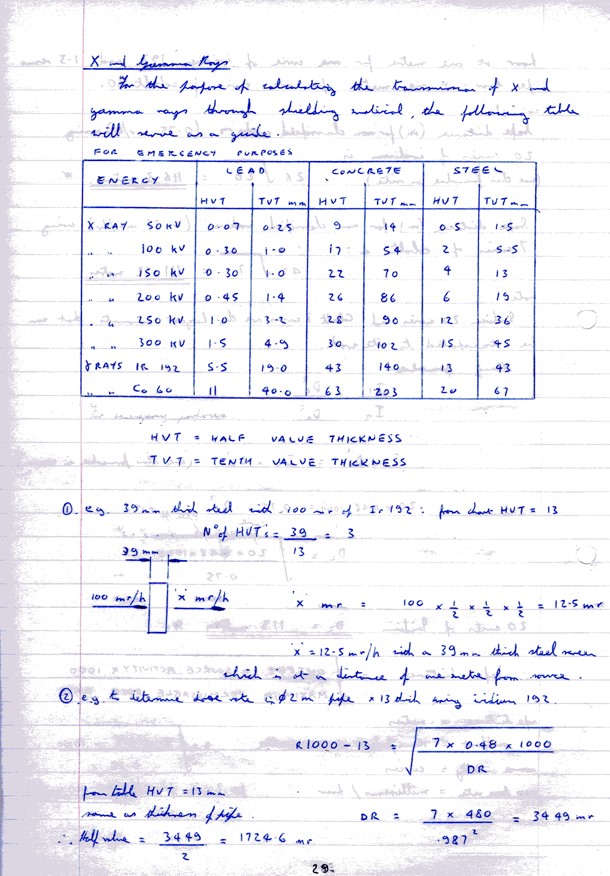 X and Gamma Rays
For the purpose of calculating the transmission of X and
gamma rays through shielding material, the following table
will serve as a guide.
FOR EMERGENCY PURPOSES
ENERGY LEAD CONCRETE STEEL
HVT TVT mm HVT TVT mm HVT TVT mm
X RAY 50 KV 0.07 0.25 9 14 0.5 1.5
" " 100 KV 0.30 1.0 17 54 2 5.5
" " 150 KV 0.30 1.0 22 70 4 13
" " 200 KV 0.45 1.4 26 86 6 19
" " 250 KV 1.0 3.2 28 90 12 36
" " 300 KV 1.5 4.9 30 102 15 45
γ RAYS IR 192 5.5 19.0 43 140 13 43
" " Co 60 11 40.0 63 203 20 67
HVT = HALF VALUE THICKNESS
TVT = TENTH VALUE THICKNESS
① e.g. 39 mm thick steel with 100 mr of Ir 192: from chart HVT = 13
Nº of HVT's = 39/13 = 3
39 mm
100 mr/h 'x' mr/h
'x' mr = 100 x 1/2 x 1/2 x 1/2 = 12.5 mr
'x' = 12.5 mr/h with a 39 mm thick steel screen
which is at a distance of one metre from source.
② e.g. to determine dose rate in Ø 2 m pipe x 13 thick using iridium 192.
R1000 - 13 = √ 7 x 0.48 x 1000 / DR
from table HVT = 13 mm
same as thickness of pipe. DR = 7 x 480 / .987² = 3449 mr
∴ Half value = 3449/2 = 1724.6 mr
29.